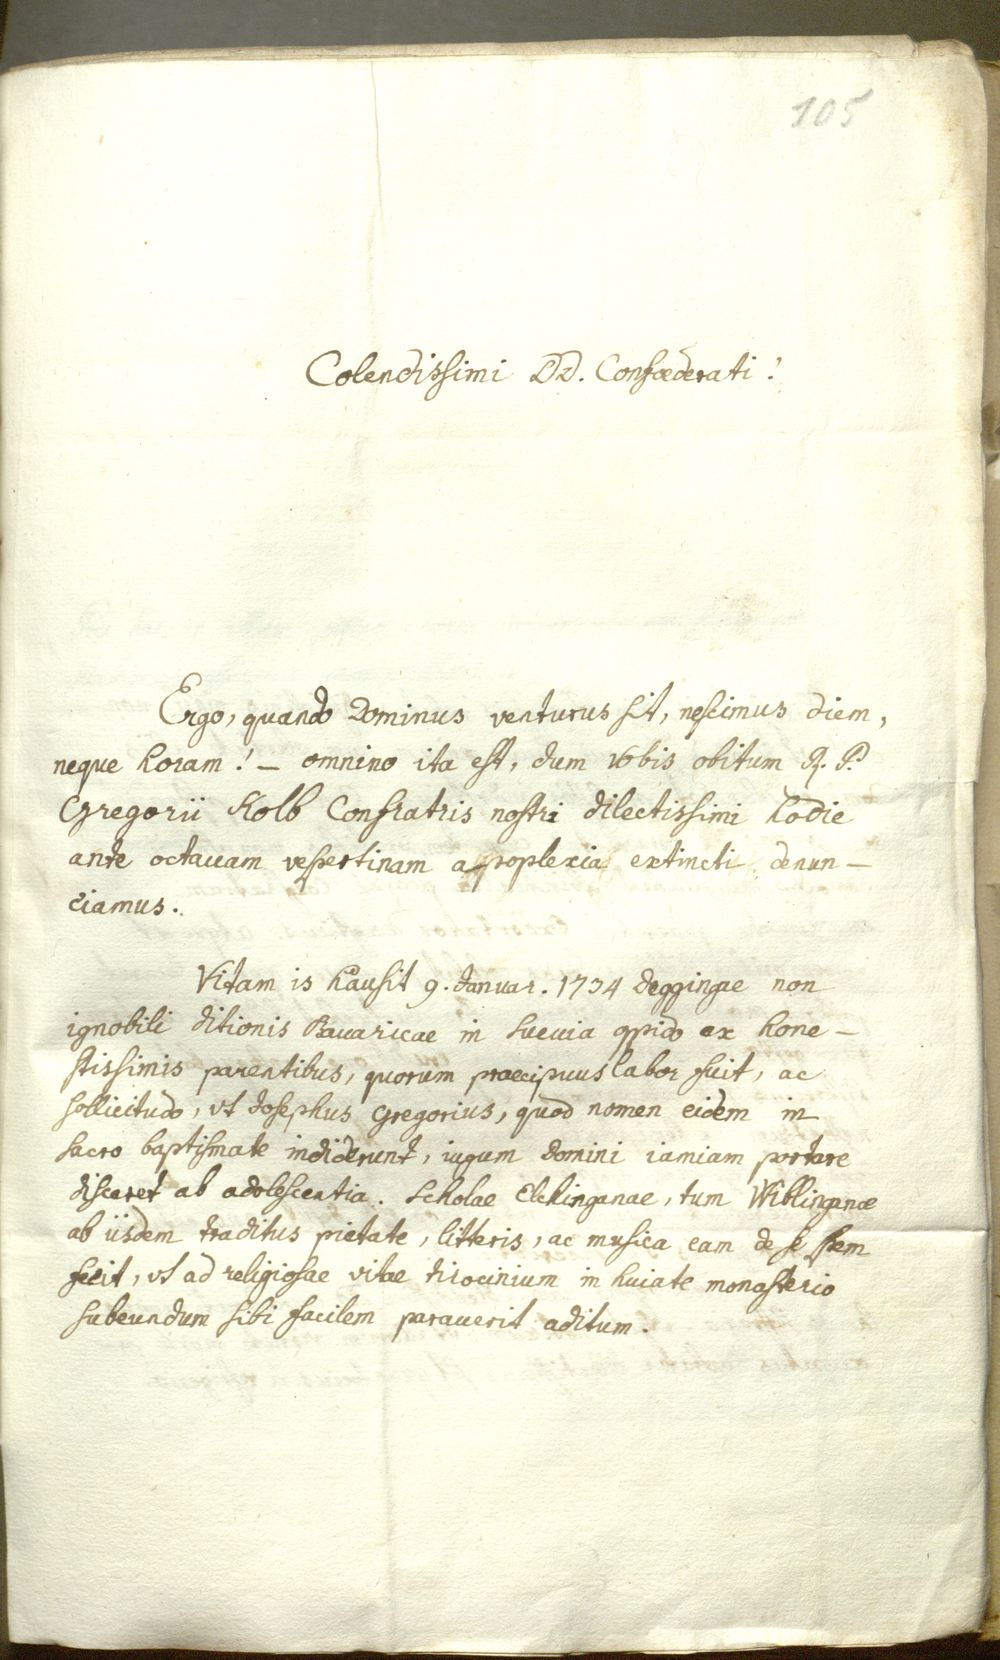 105
Colendissimi DD. Confoederati!
Ergo, quando Dominus venturus sit, nescimus diem,
neque horam! – omnino ita est, dum vobis obitum R. P.
Gregorii Kolb Confratris nostri dilectissimi hodie
ante octavam vespertinam apoplexia extincti denun-
ciamus.
Vitam is hausit 9. Januar. 1734 Deggingae non
ignobili ditionis Bavaricae in Suevia oppido ex hone-
stissimis parentibus, quorum praecipuus labor fuit, ac
sollicitudo, vt Josephus Gregorius, quod nomen eidem in
sacro baptismate indiderunt, iugum Domini iamiam portare
disceret ab adolescentia. Scholae Elchinganae, tum Wiblinganae
ab iisdem traditus pietate, litteris, ac musica eam de se spem
fecit, vt ad religiosae vitae tirocinium in huiate monasterio
subeundum sibi facilem paraverit aditum.